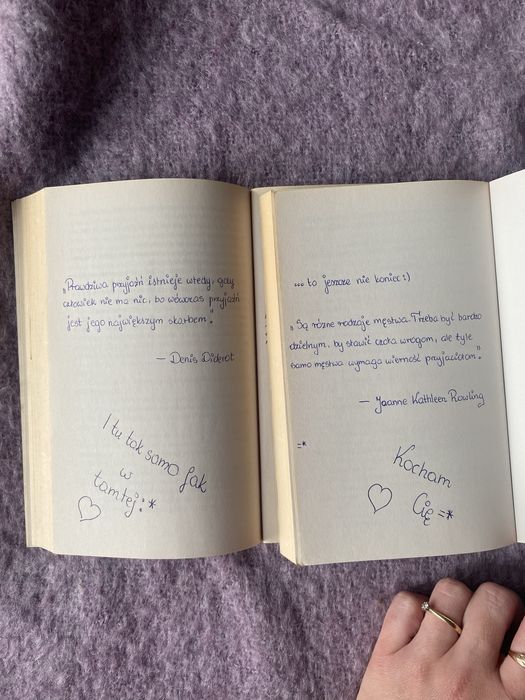 „Prawdziwa przyjaźń istnieje wtedy, gdy
człowiek nie ma nic, bo wówczas przyjaźń
jest jego największym skarbem."
— Denis Diderot
I tu tak samo jak
w
tamtej :*
♡
... to jeszcze nie koniec :)
„Są różne rodzaje męstwa. Trzeba być bardzo
dzielnym, by stawić czoła wrogom, ale tyle
samo męstwa wymaga wierność przyjaciołom."
— Joanne Kathleen Rowling
=*
Kocham
♡ Cię =*